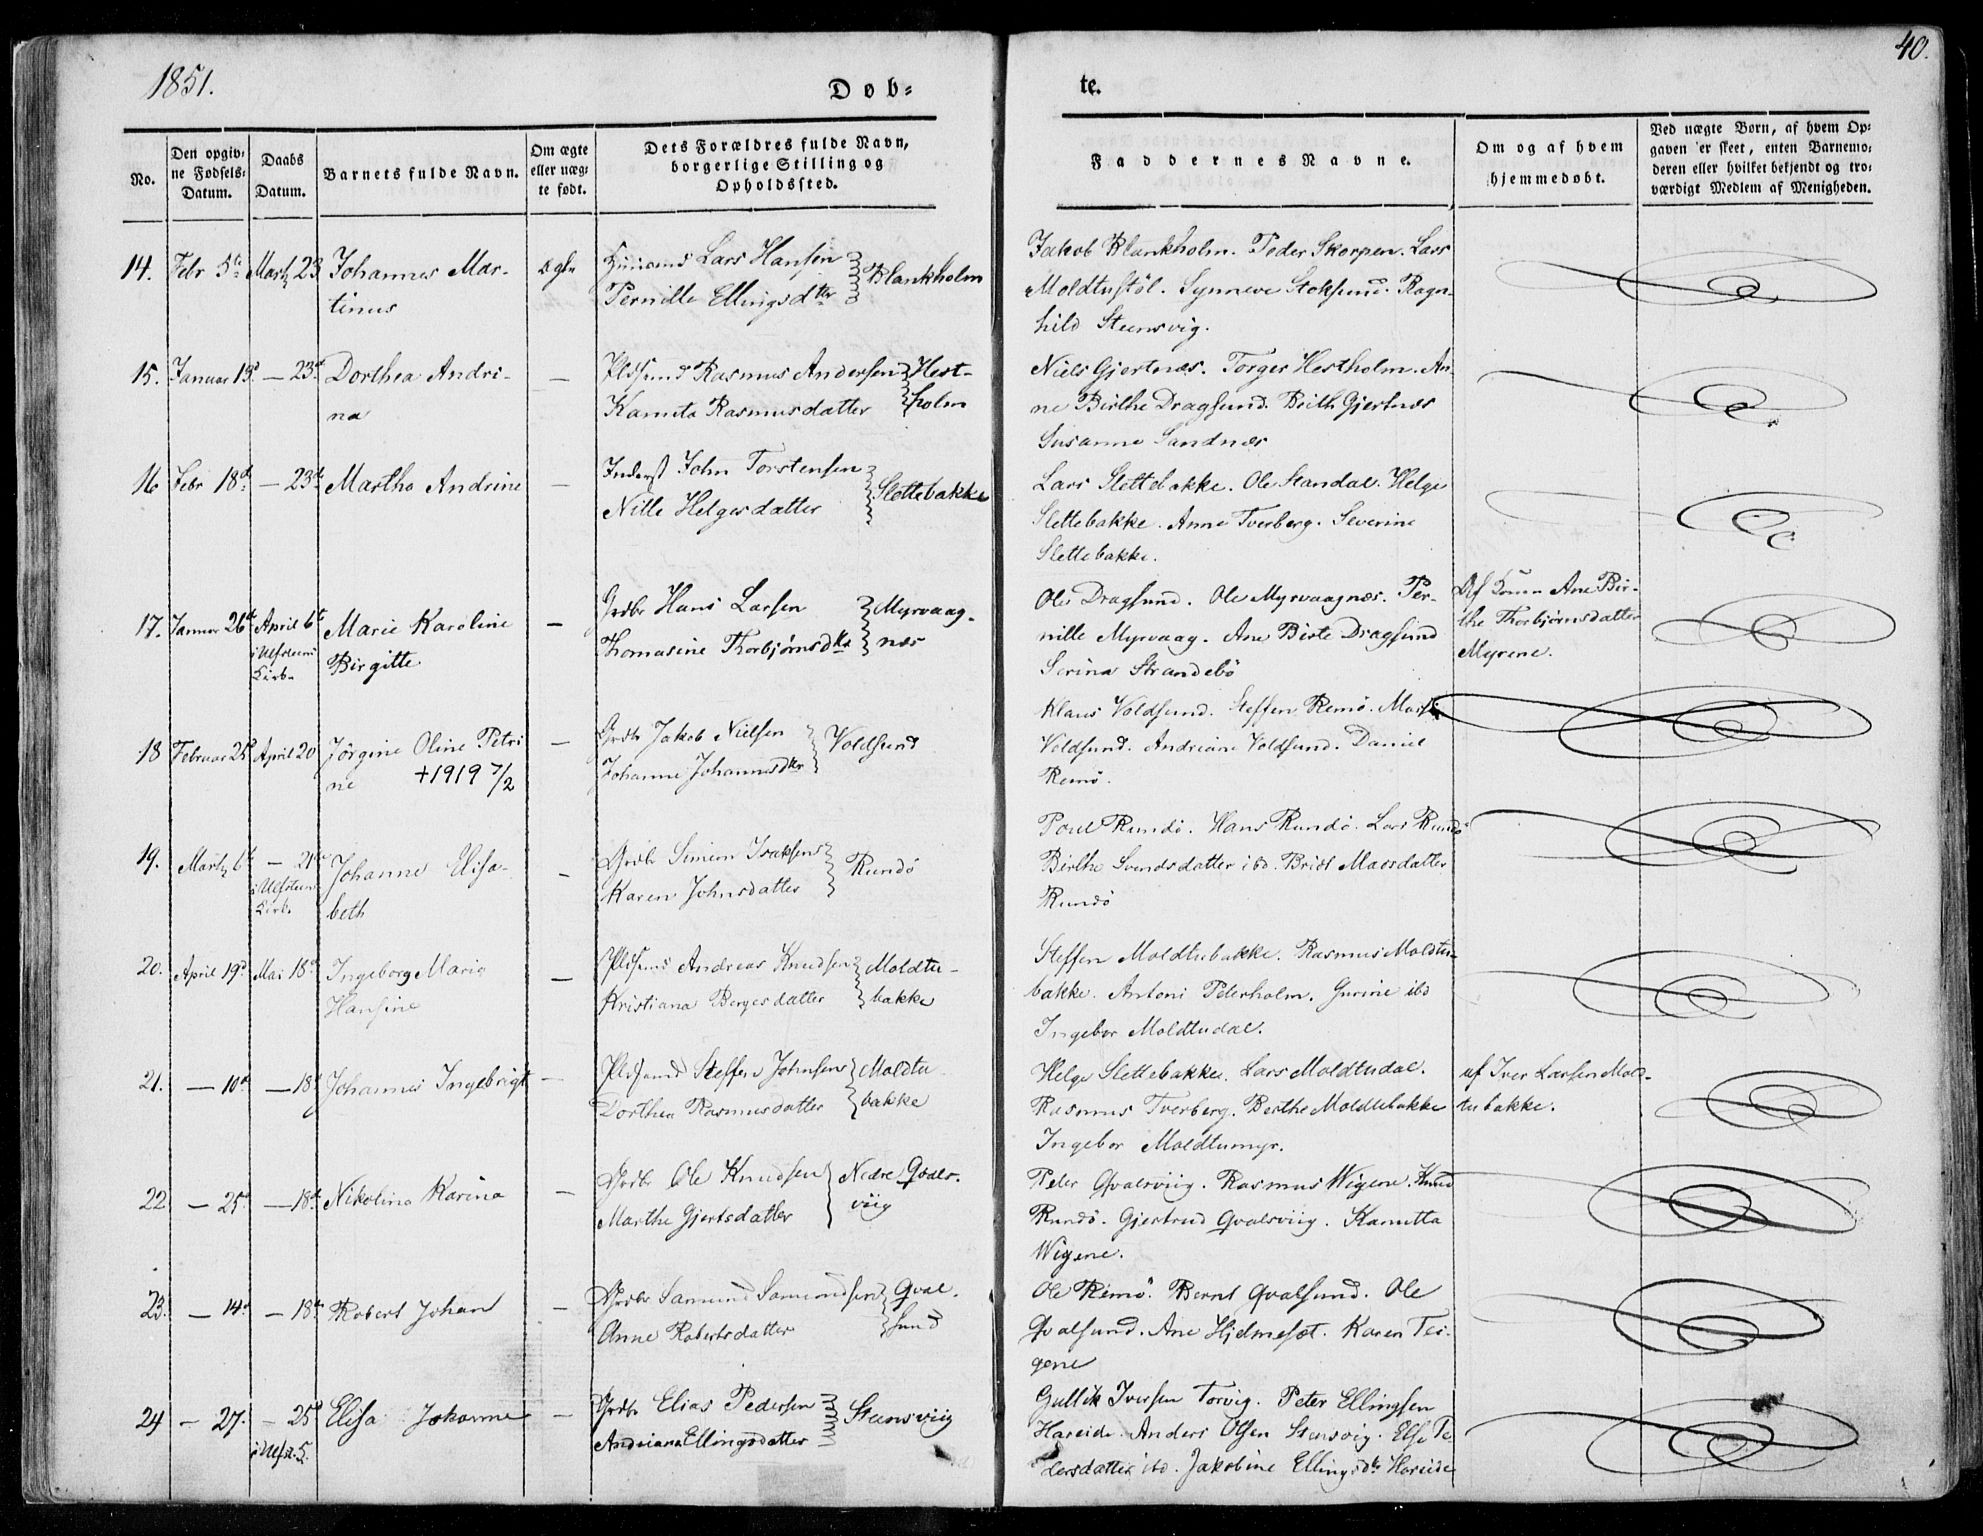 1851.
Døb=
te.
40.
No.
Den opgiv=
ne Fødsels=
Datum.
Daabs
Datum.
Barnets fulde Navn.
Om ægte
eller uæg=
te født.
Dets Forældres fulde Navn,
borgerlige Stilling og
Opholdssted.
Faddernes Navne.
Om og af hvem
hjemmedøbt.
Ved uægte Børn, af hvem Op=
gaven er skeet, enten Barnemo=
deren eller hvilket bekjendt og tro=
værdigt Medlem af Menigheden.
14. Febr 5te Marts 23 Johannes Mar-
tinus
ægte
Lars Hansen
Pernille Ellingsdtr
Blankholm
Jakob Blankholm. Peder Skorpen. Lars
Moldtustöl. Synneve Stoksund. Ragn-
hild Steensvig.
15. Januar 19d — 23d Dorthea Andri-
na
—
Pldsmd Rasmus Andersen
Kanuta Rasmusdatter
Hest-
holm
Niels Gjertnæs. Torger Hestholm. An-
ne Birthe Dragsund. Brith Gjertnæs
Susanne Sandnæs
16 Febr 18de — 23de Martha Andrine
—
Inderst John Torstensen
Nille Helgesdatter
Slettebakke
Lars Slettebakke. Ole Standal. Helge
Slettebakke. Anne Tverberg. Severine
Slettebakke.
17. Januar 26de April 6te
i Ulfsteen
Kirke
Marie Karoline
Birgitte
—
Grdbr Hans Larsen
Thomasine Thorbjørnsdtr
Myrvaag-
næs
Ole Dragsund. Ole Myrvaagnæs. Per-
nille Myrvaag. Ane Birte Dragsund
Serina Strandebö
Af Konen Ane Bir-
the Thorbjørnsdatter
Myrene.
18 Februar 25d April 20 Jörgine Oline Petri
ne +1919 7/2
—
Grdbr Jakob Nielsen
Johanne Johannesdtr
Voldsund
Klaus Voldsund. Steffen Remö.
Voldsund. Andriane Voldsund. Daniel
Remö.
19. Marts 6te — 21de
i Ulfsteen
Kirk.
Johanne Elisa-
beth
—
Grdbr Simeon Isaksen
Karen Johnsdatter
Rundö
Poul Rundö. Hans Rundö. Lars Rundö
Birthe Svendsdatter ibd. Bridt Marsdatter
Rundö
20. April 19d Mai 18de Ingeborg Marie
Hansine
—
Pldsmd Andreas Knudsen
Kristiana Borgesdatter
Moldtu-
bakke
Steffen Moldtubakke. Rasmus Moldtu-
bakke. Antoni Peterholm. Gurine ibd
Ingebor Moldtudal.
21. — 10d — 18d Johannes Ingebrigt
—
Pldsmd Steffen Johnsen
Dorthea Rasmusdatter
Moldtu-
bakke
Helge Slettebakke. Lars Moldtudal.
Rasmus Tverberg. Berthe Moldtubakke
Ingebor Moldtumyr.
af Iver Larsen Mold-
tubakke.
22 — 25d — 18de Nikolina Karina
—
Grdbr Ole Knudsen
Marthe Gjertsdatter
Nedre Qvals-
viig
Peter Qvalsviig. Rasmus Wigene. Knud
Rundö. Gjertrud Qvalsviig. Kanutta
Wigene.
23. — 14d — 18de Robert Johan
—
Grdbr Samund Samundsen
Anne Robertsdatter
Qval-
sund
Ole Remö. Bernt Qvalsund. Ole
Qvalsund. Ane Hjelmeset. Karen Tei-
gene
24 — 27. — 25d
i Ulfst. 5.
Elisa Johanne
—
Grdbr Elias Pedersen
Andriana Ellingsdatter
Steensviig
Gullik Iversen Torvig. Peter Ellingsen
Hareide. Anders Olsen Steensvig. Else Pe-
dersdatter ibd. Jakobine Ellingsdtr Hareide